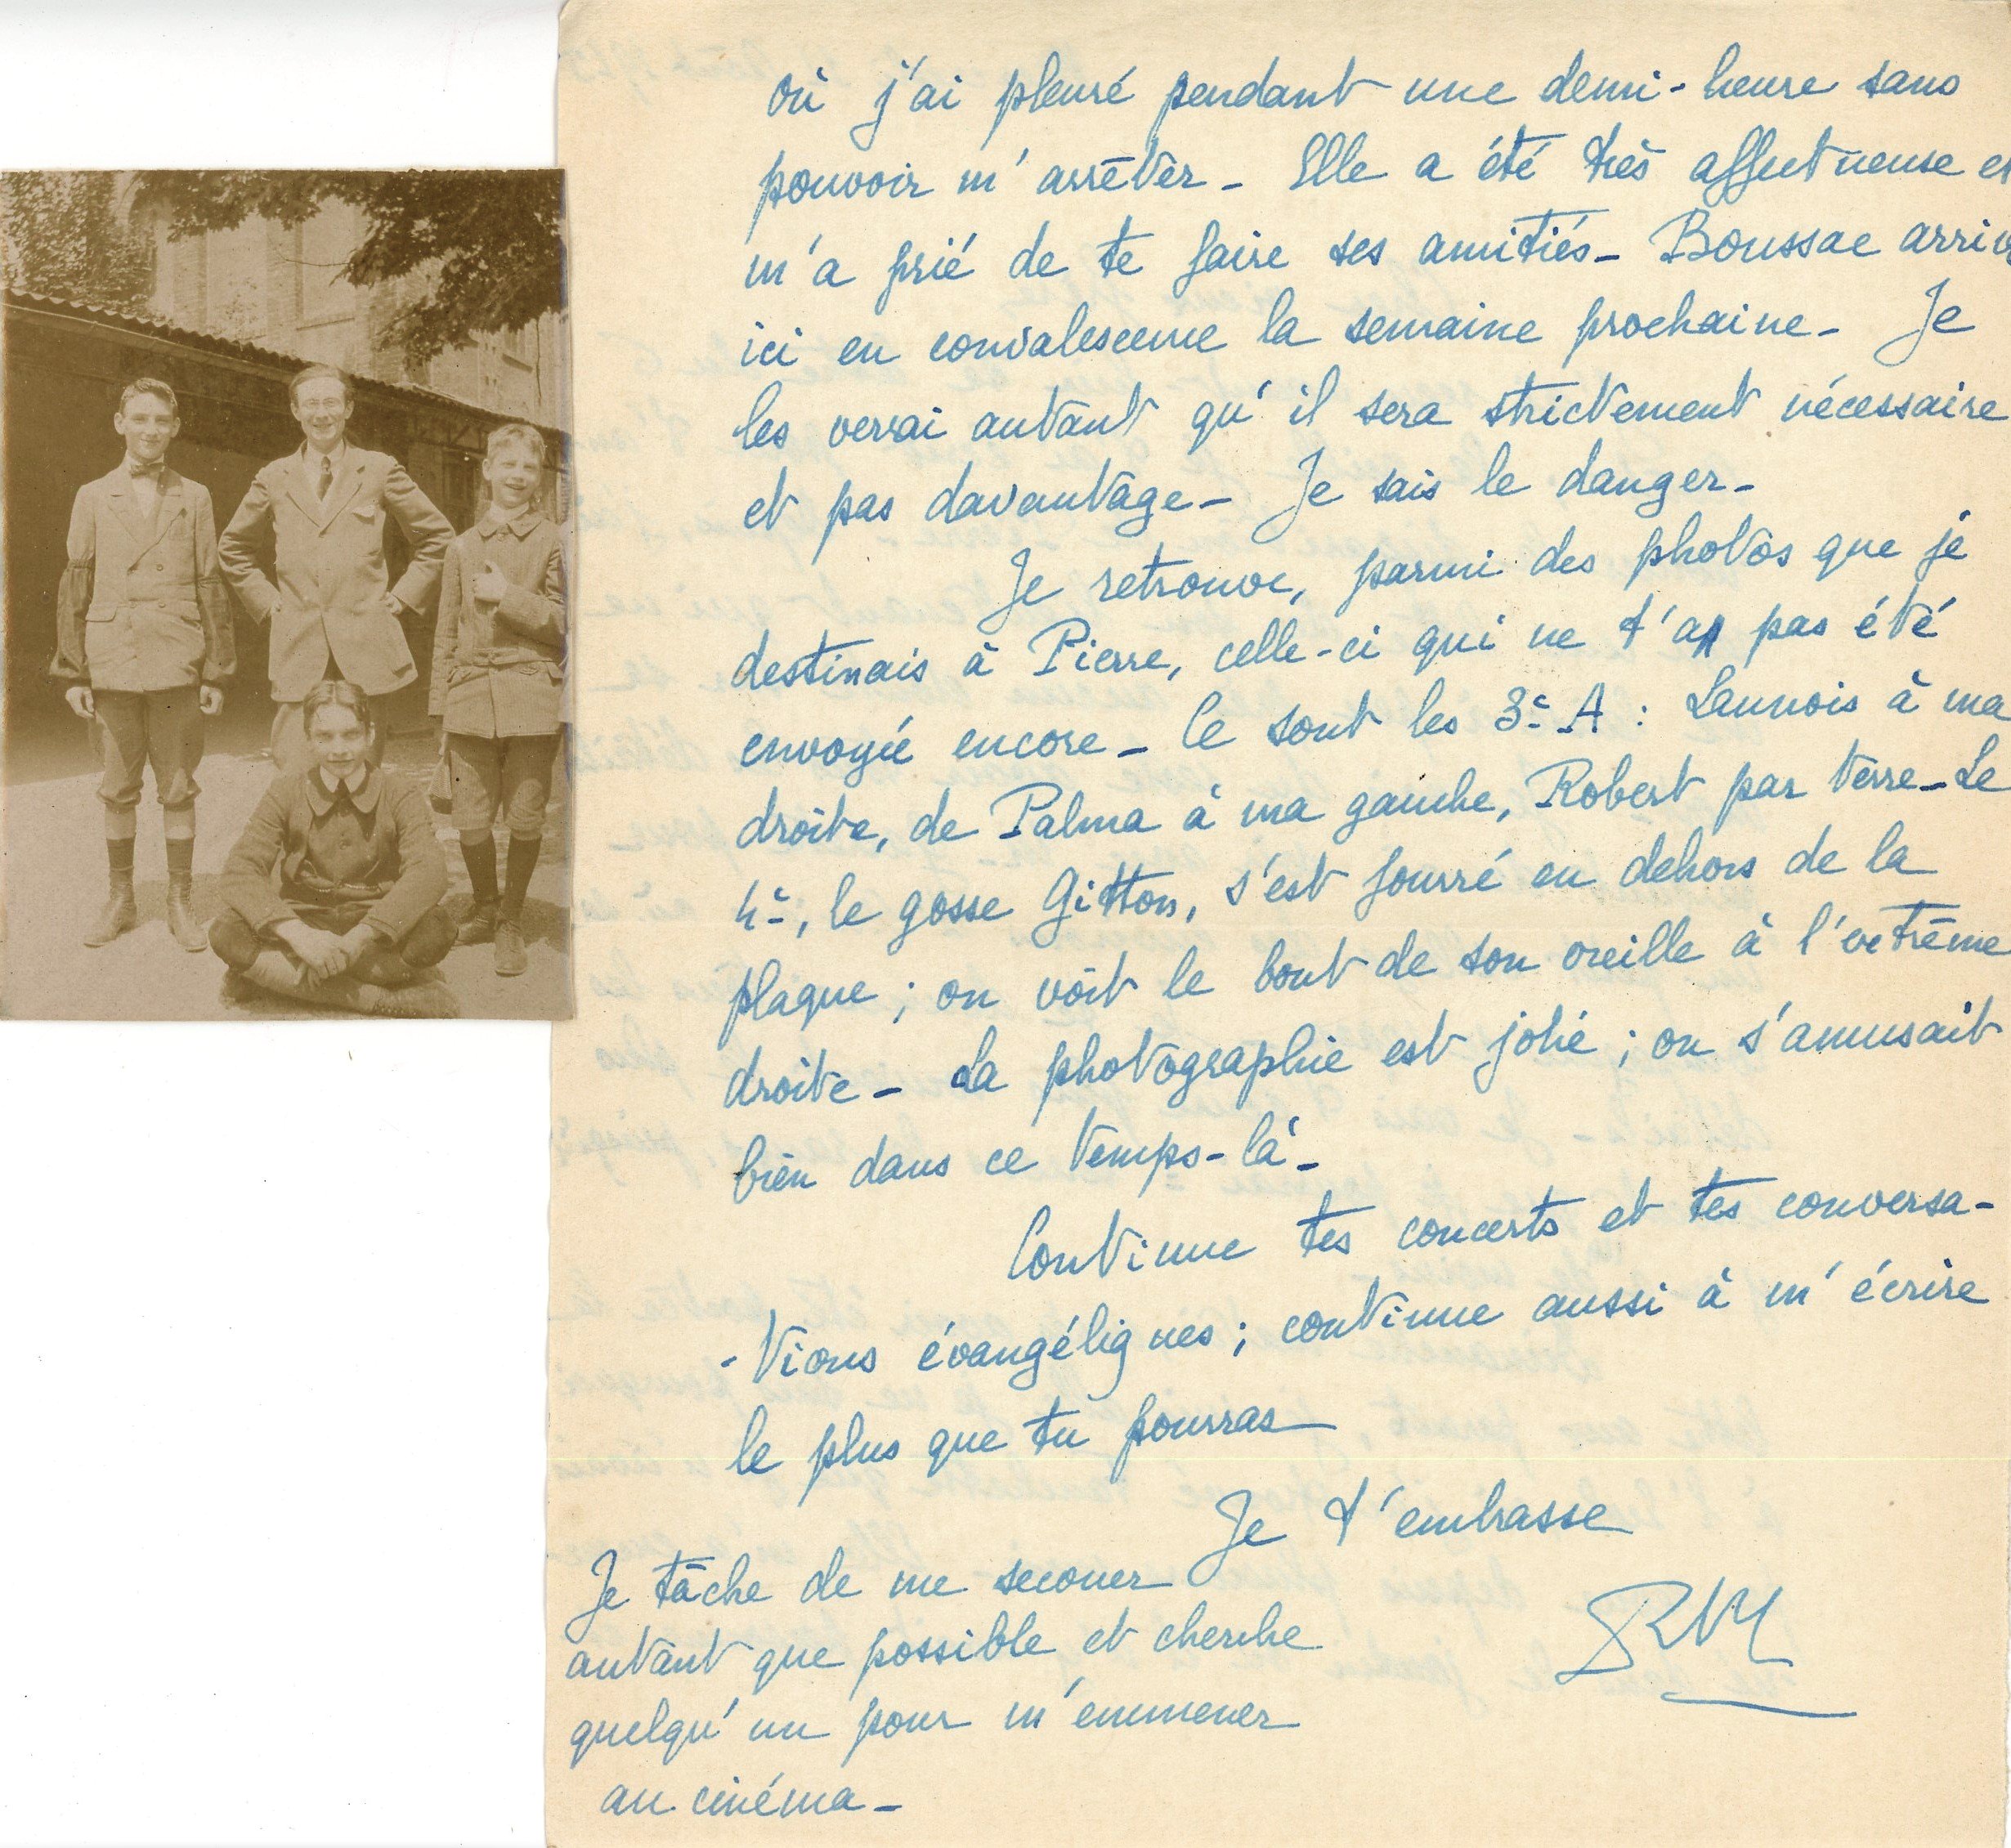 où j'ai pleuré pendant une demi-heure sans
pouvoir m'arrêter - Elle a été très affectueuse et
m'a prié de te faire ses amitiés - Boussac arrive
ici en convalescence la semaine prochaine - Je
les verrai autant qu'il sera strictement nécessaire
et pas davantage - Je sais le danger -
Je retrouve, parmi des photos que je
destinais à Pierre, celle-ci qui ne t'a pas été
envoyée encore - Ce sont les 3e A : Launois à ma
droite, de Palma à ma gauche, Robert par terre - Le
4e, le gosse Gitton, s'est fourré en dehors de la
plaque ; on voit le bout de son oreille à l'extrême
droite - La photographie est jolie ; on s'amusait
bien dans ce temps-là -
Continue tes concerts et tes conversa-
-tions évangéliques ; continue aussi à m'écrire
le plus que tu pourras
Je t'embrasse
RM
Je tâche de me secouer
autant que possible et cherche
quelqu'un pour m'emmener
au cinéma -